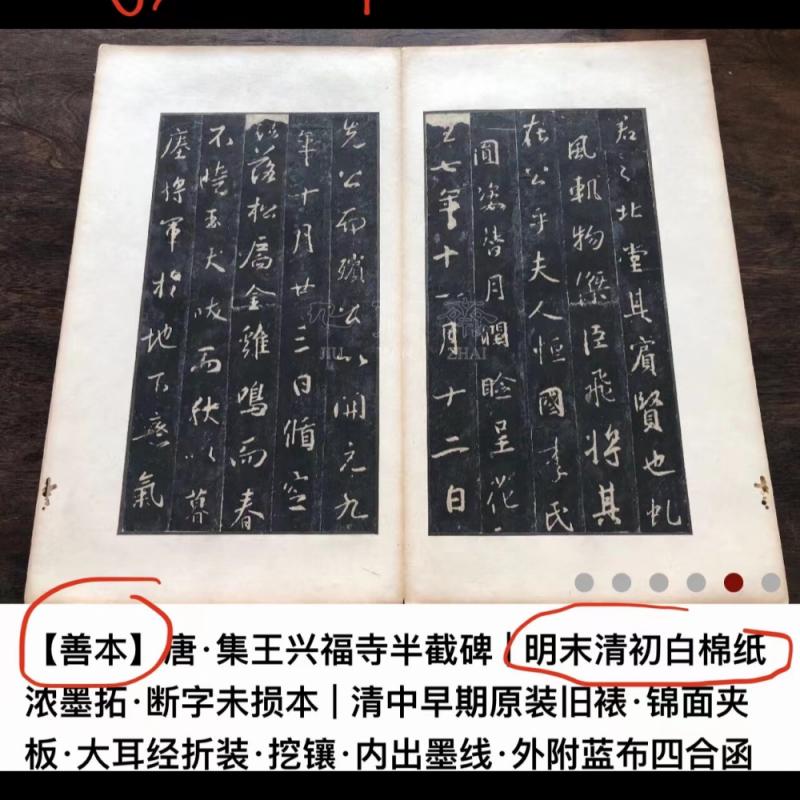 君之北堂其賓賢也虬
風軌物傑臣飛將其
在公乎夫人恒國李氏
圓姿替月潤臉呈花
七年十一月十二日
先公而殞公以開元九
年十月廿三日循窆
落松扃金雞鳴而春
不曉玉犬吠而秋以暮
將軍於地下
JIU ZHAI
【善本】唐·集王兴福寺半截碑 | 明末清初白棉纸
浓墨拓·断字未损本 | 清中早期原装旧裱·锦面夹
板·大耳经折装·挖镶·内出墨线·外附蓝布四合函